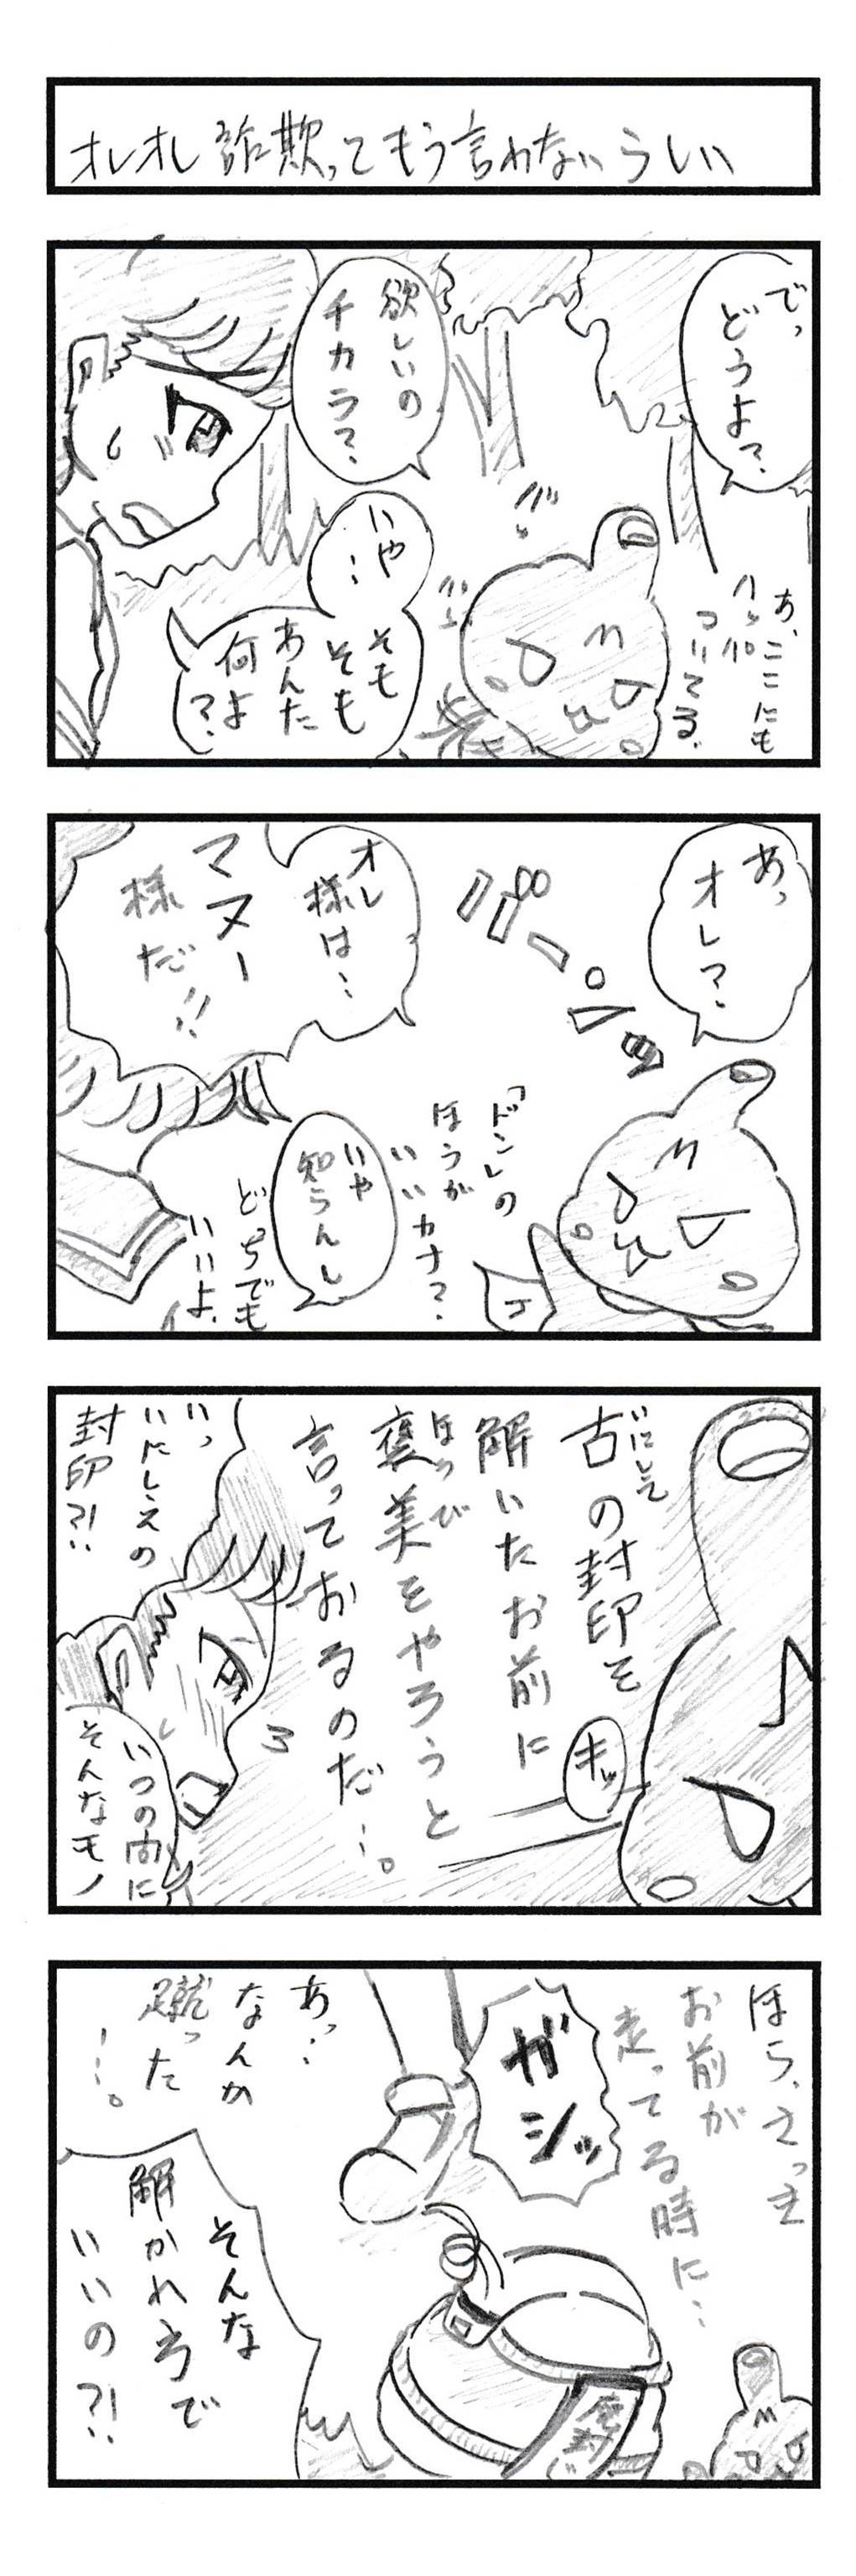 オレオレ詐欺ってもう言わないらしい
でっ
どうよ？
欲しいの
チカラ？
あ、ここにも
ハッパ
ついてる。
いや…
そも
そも
あんた
何よ
？
あっ
オレ？
パーン
オレ
様は…
マヌー
様だ!!
「ドン」の
ほうが
いいカナ？
いや
知らんし
どっちでも
いいよ。
古の封印を
いにしえ
解いたお前に
褒美をやろうと
ほうび
言っておるのだ…。
キッ
いっ
いにしえの
封印?!
いつの間に
そんなモノ
ほら、さっき
お前が
走ってる時に…
ガシッ
あっ…
なんか
蹴った
…。
そんな
解かれ方で
いいの?!
魔封じ